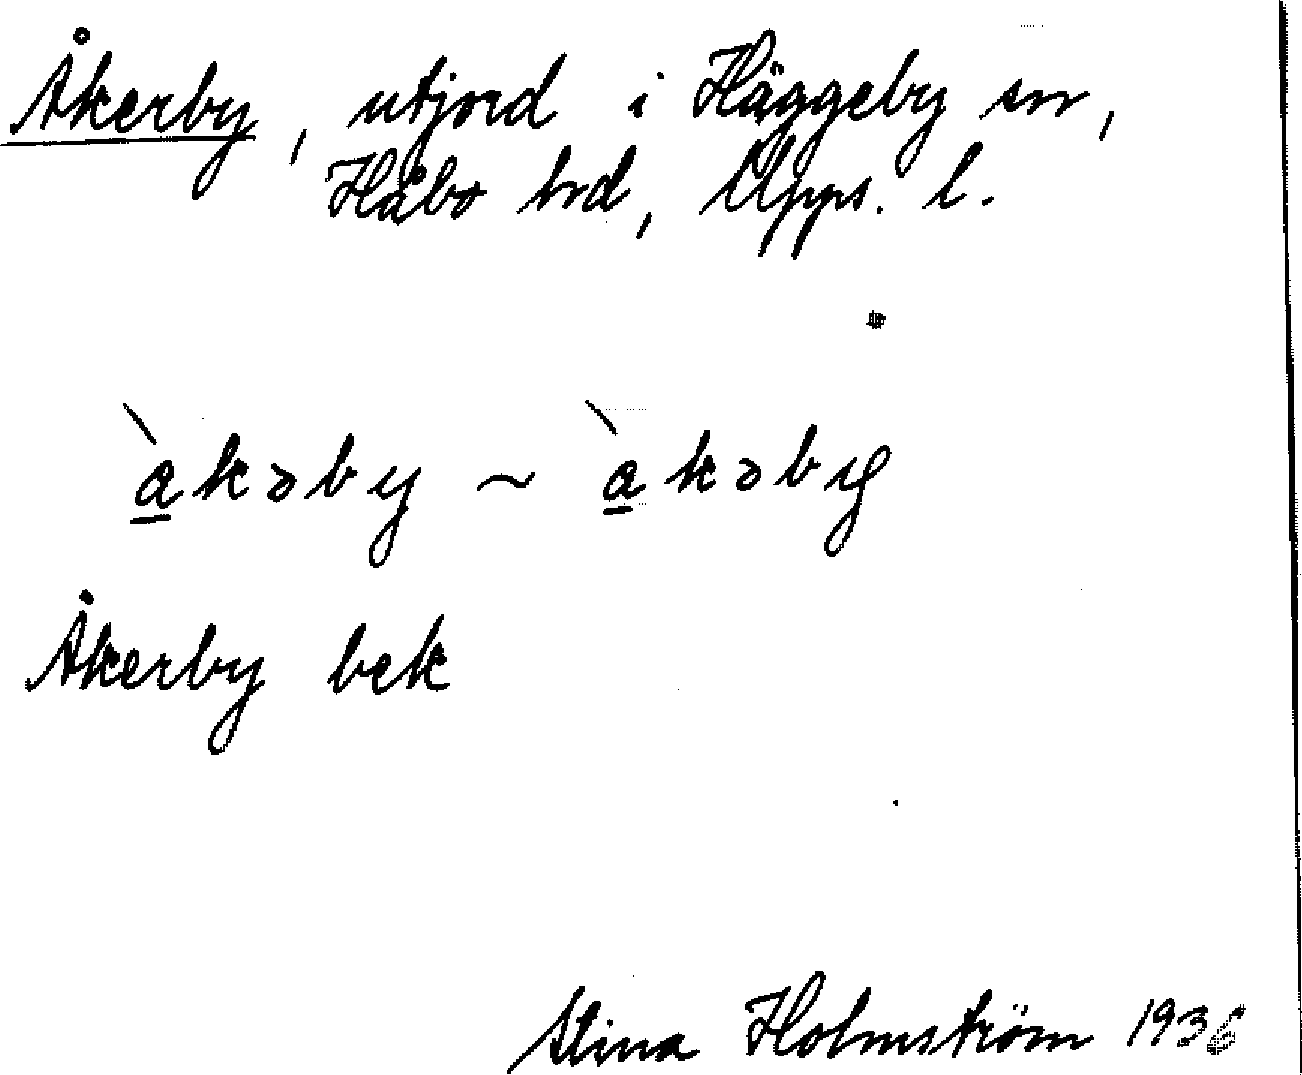 Åkerby, utjord i Häggeby sn,
Håbo hrd, Upps. l.
àkəby ~ àkəby
Åkerby bek
Stina Holmström 1936